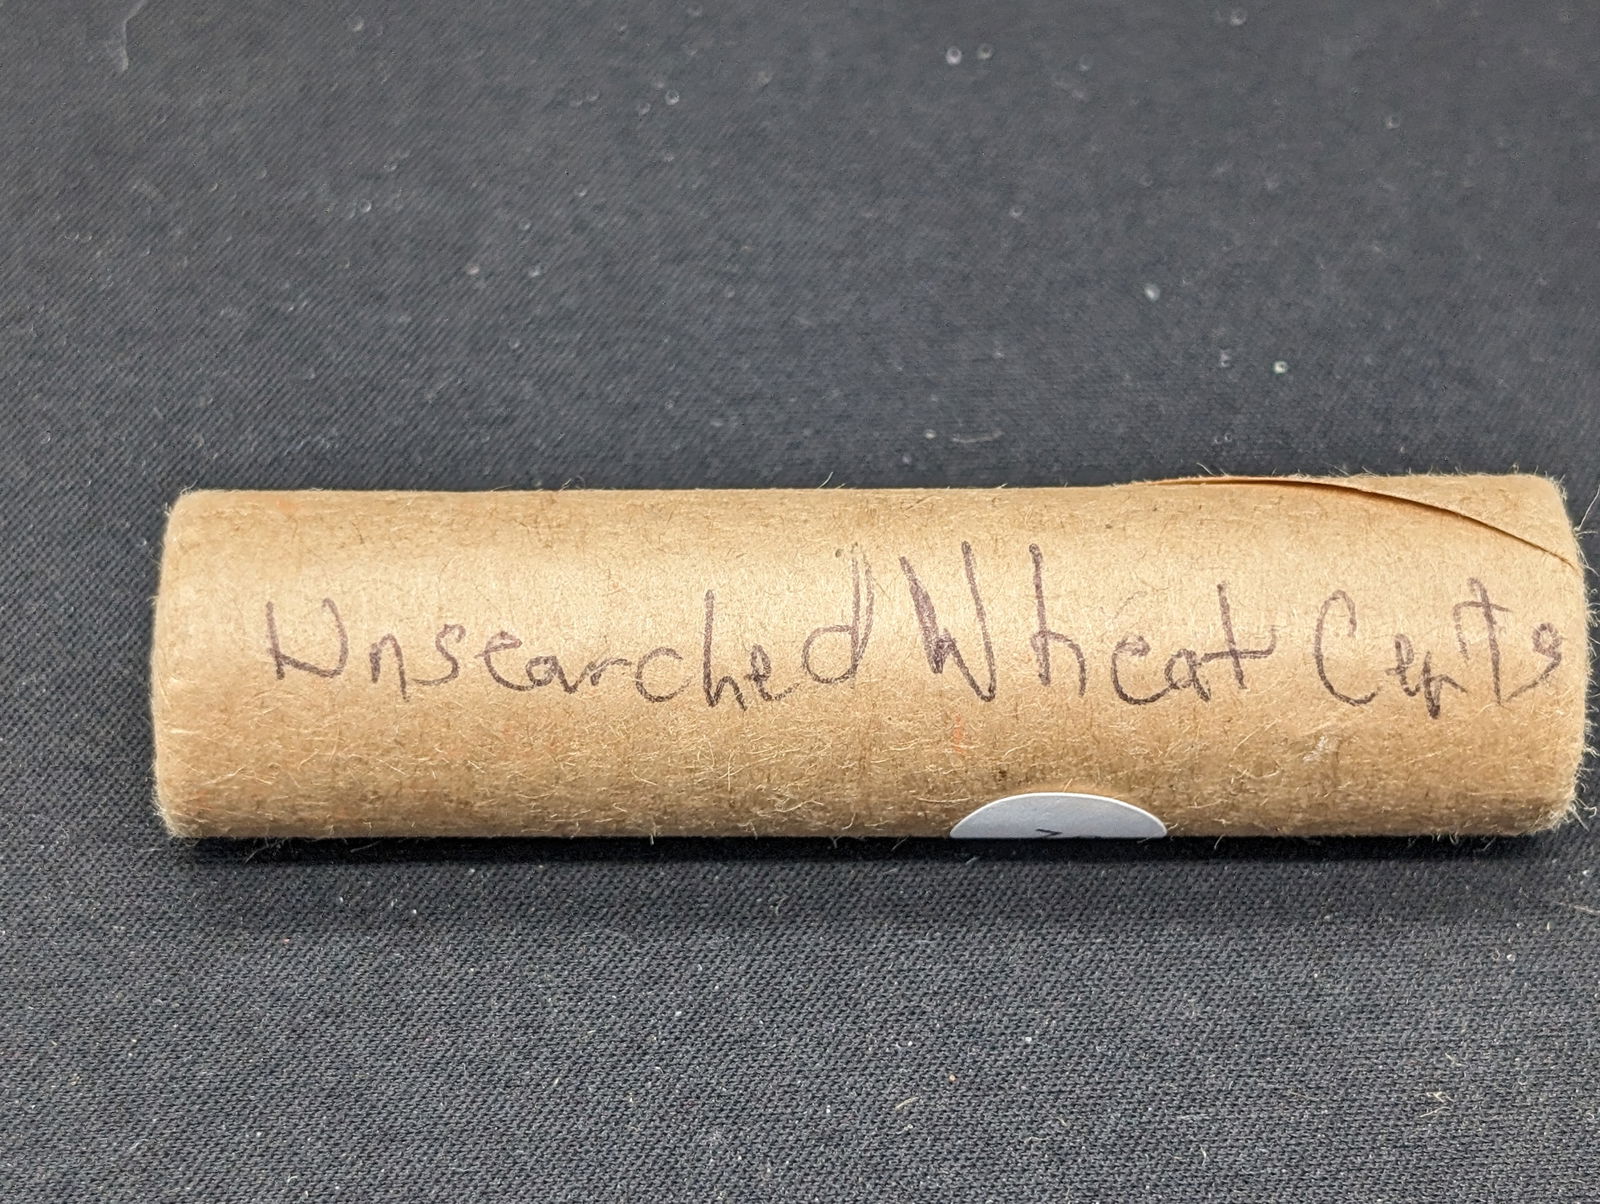 Unsearched Wheat Cents